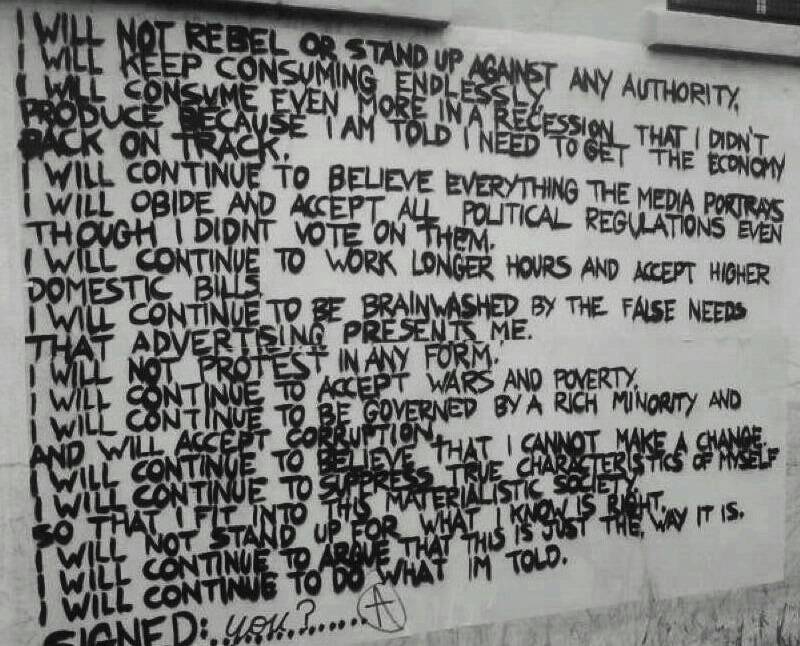 I WILL NOT REBEL OR STAND UP AGAINST ANY AUTHORITY.
I WILL KEEP CONSUMING ENDLESSLY,
I WILL CONSUME EVEN MORE IN A RECESSION THAT I DIDN'T
PRODUCE BECAUSE I AM TOLD I NEED TO GET THE ECONOMY
BACK ON TRACK.
I WILL CONTINUE TO BELIEVE EVERYTHING THE MEDIA PORTRAYS
I WILL OBIDE AND ACCEPT ALL POLITICAL REGULATIONS EVEN
THOUGH I DIDNT VOTE ON THEM.
I WILL CONTINUE TO WORK LONGER HOURS AND ACCEPT HIGHER
DOMESTIC BILLS
I WILL CONTINUE TO BE BRAINWASHED BY THE FALSE NEEDS
THAT ADVERTISING PRESENTS ME.
I WILL NOT PROTEST IN ANY FORM.
I WILL CONTINUE TO ACCEPT WARS AND POVERTY.
I WILL CONTINUE TO BE GOVERNED BY A RICH MINORITY AND
AND WILL ACCEPT CORRUPTION.
I WILL CONTINUE TO BELIEVE THAT I CANNOT MAKE A CHANGE.
I WILL CONTINUE TO SUPPRESS TRUE CHARACTERISTICS OF MYSELF
SO THAT I FIT INTO THIS MATERIALISTIC SOCIETY.
I WILL NOT STAND UP FOR WHAT I KNOW IS RIGHT.
I WILL CONTINUE TO ARGUE THAT THIS IS JUST THE WAY IT IS.
I WILL CONTINUE TO DO WHAT IM TOLD.
SIGNED: you?...... A